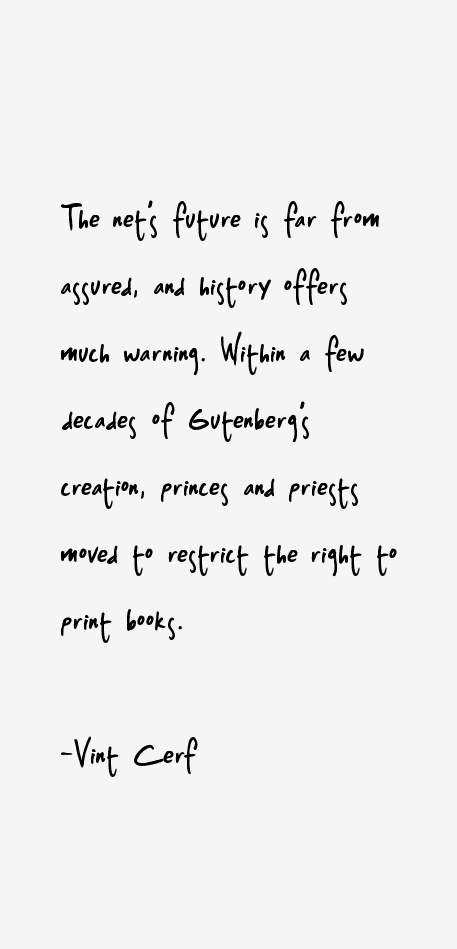 The net's future is far from
assured, and history offers
much warning. Within a few
decades of Gutenberg's
creation, princes and priests
moved to restrict the right to
print books.
-Vint Cerf